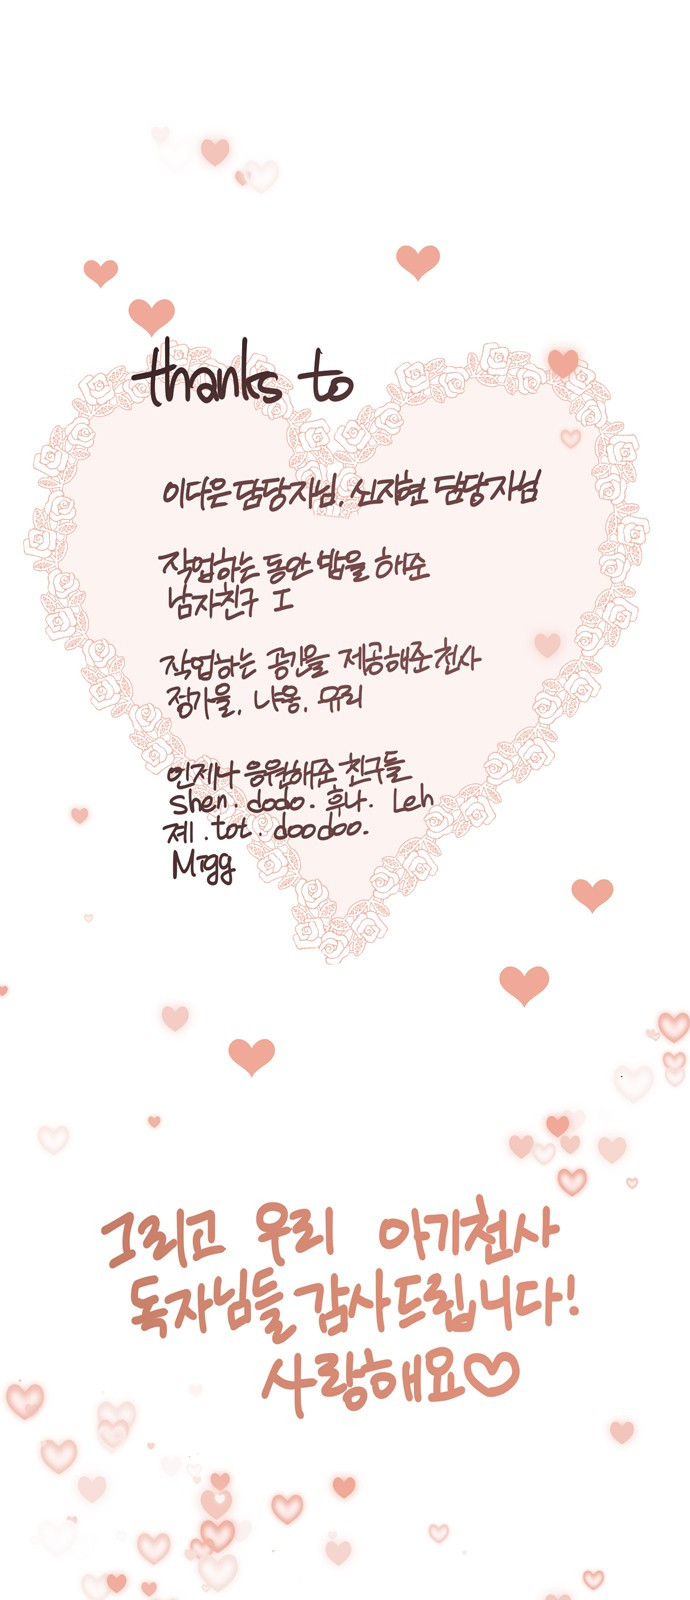 thanks to
이다은 담당자님. 신지현 담당자님
작업하는 동안 밥을 해준
남자친구 I
작업하는 공간을 제공해준 천사
정가을, 냐옹, 유리
언제나 응원해준 친구들
shen. dodo. 휴나. Leh
졔. tot. doodoo.
Migg
그리고 우리 아기천사
독자님들 감사드립니다!
사랑해요♡